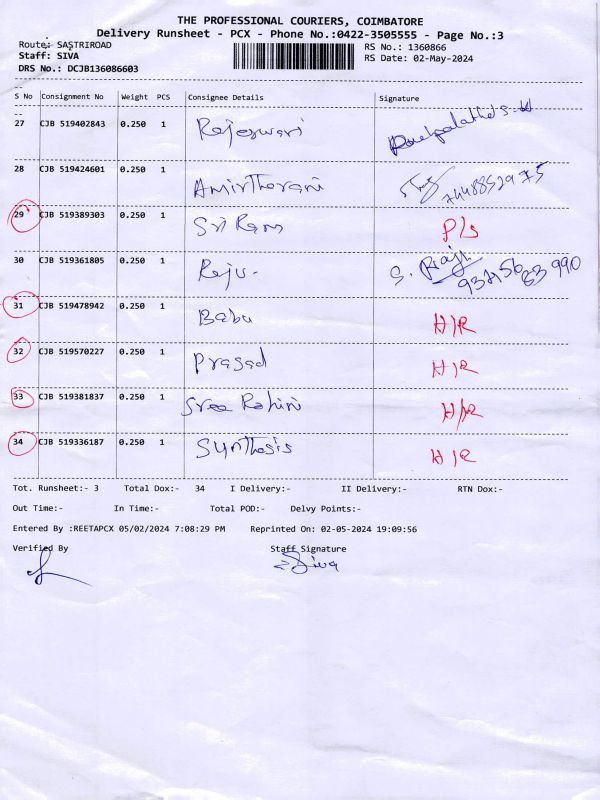 THE PROFESSIONAL COURIERS, COIMBATORE
Delivery Runsheet - PCX - Phone No.:0422-3505555 - Page No.:3
Route: SASTRIROAD RS No.: 1360866
Staff: SIVA RS Date: 02-May-2024
DRS No.: DCJB136086603
S No Consignment No Weight PCS Consignee Details Signature
27 CJB 519402843 0.250 1 Rajeswari
28 CJB 519424601 0.250 1 Amirtharani 7448852975
29 CJB 519389303 0.250 1 Sri Ram P/s
30 CJB 519361805 0.250 1 Raju- S. Raji
31 CJB 519478942 0.250 1 Babu H/R
32 CJB 519570227 0.250 1 Prasad H/R
33 CJB 519381837 0.250 1 Sree Rohini H/R
34 CJB 519336187 0.250 1 Synthesis H/R
Tot. Runsheet:- 3 Total Dox:- 34 I Delivery:- II Delivery:- RTN Dox:-
Out Time:- In Time:- Total POD:- Delvy Points:-
Entered By :REETAPCX 05/02/2024 7:08:29 PM Reprinted On: 02-05-2024 19:09:56
Verified By Staff Signature
Siva